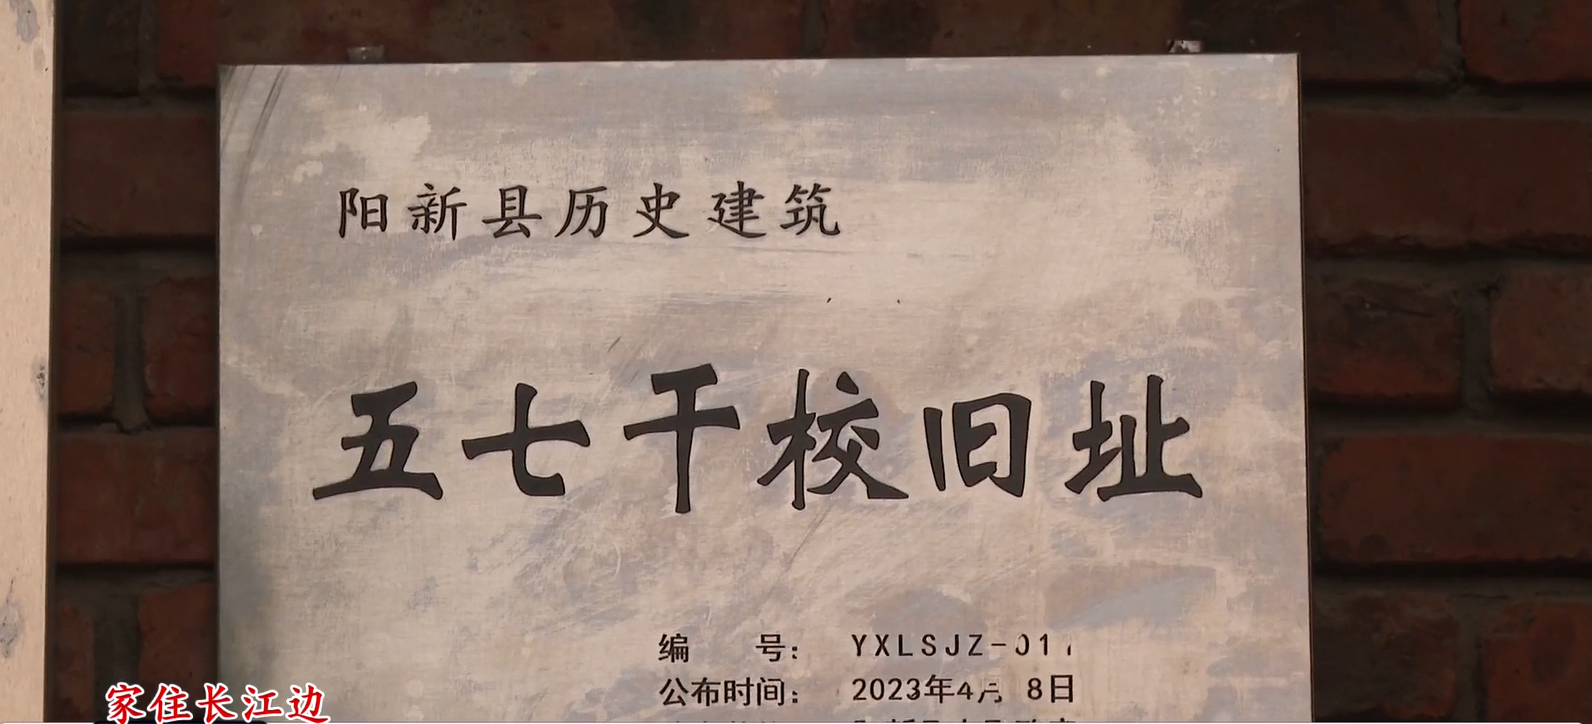 阳新县历史建筑
五七干校旧址
编 号： YXLSJZ-011
公布时间： 2023年4月 8日
家住长江边